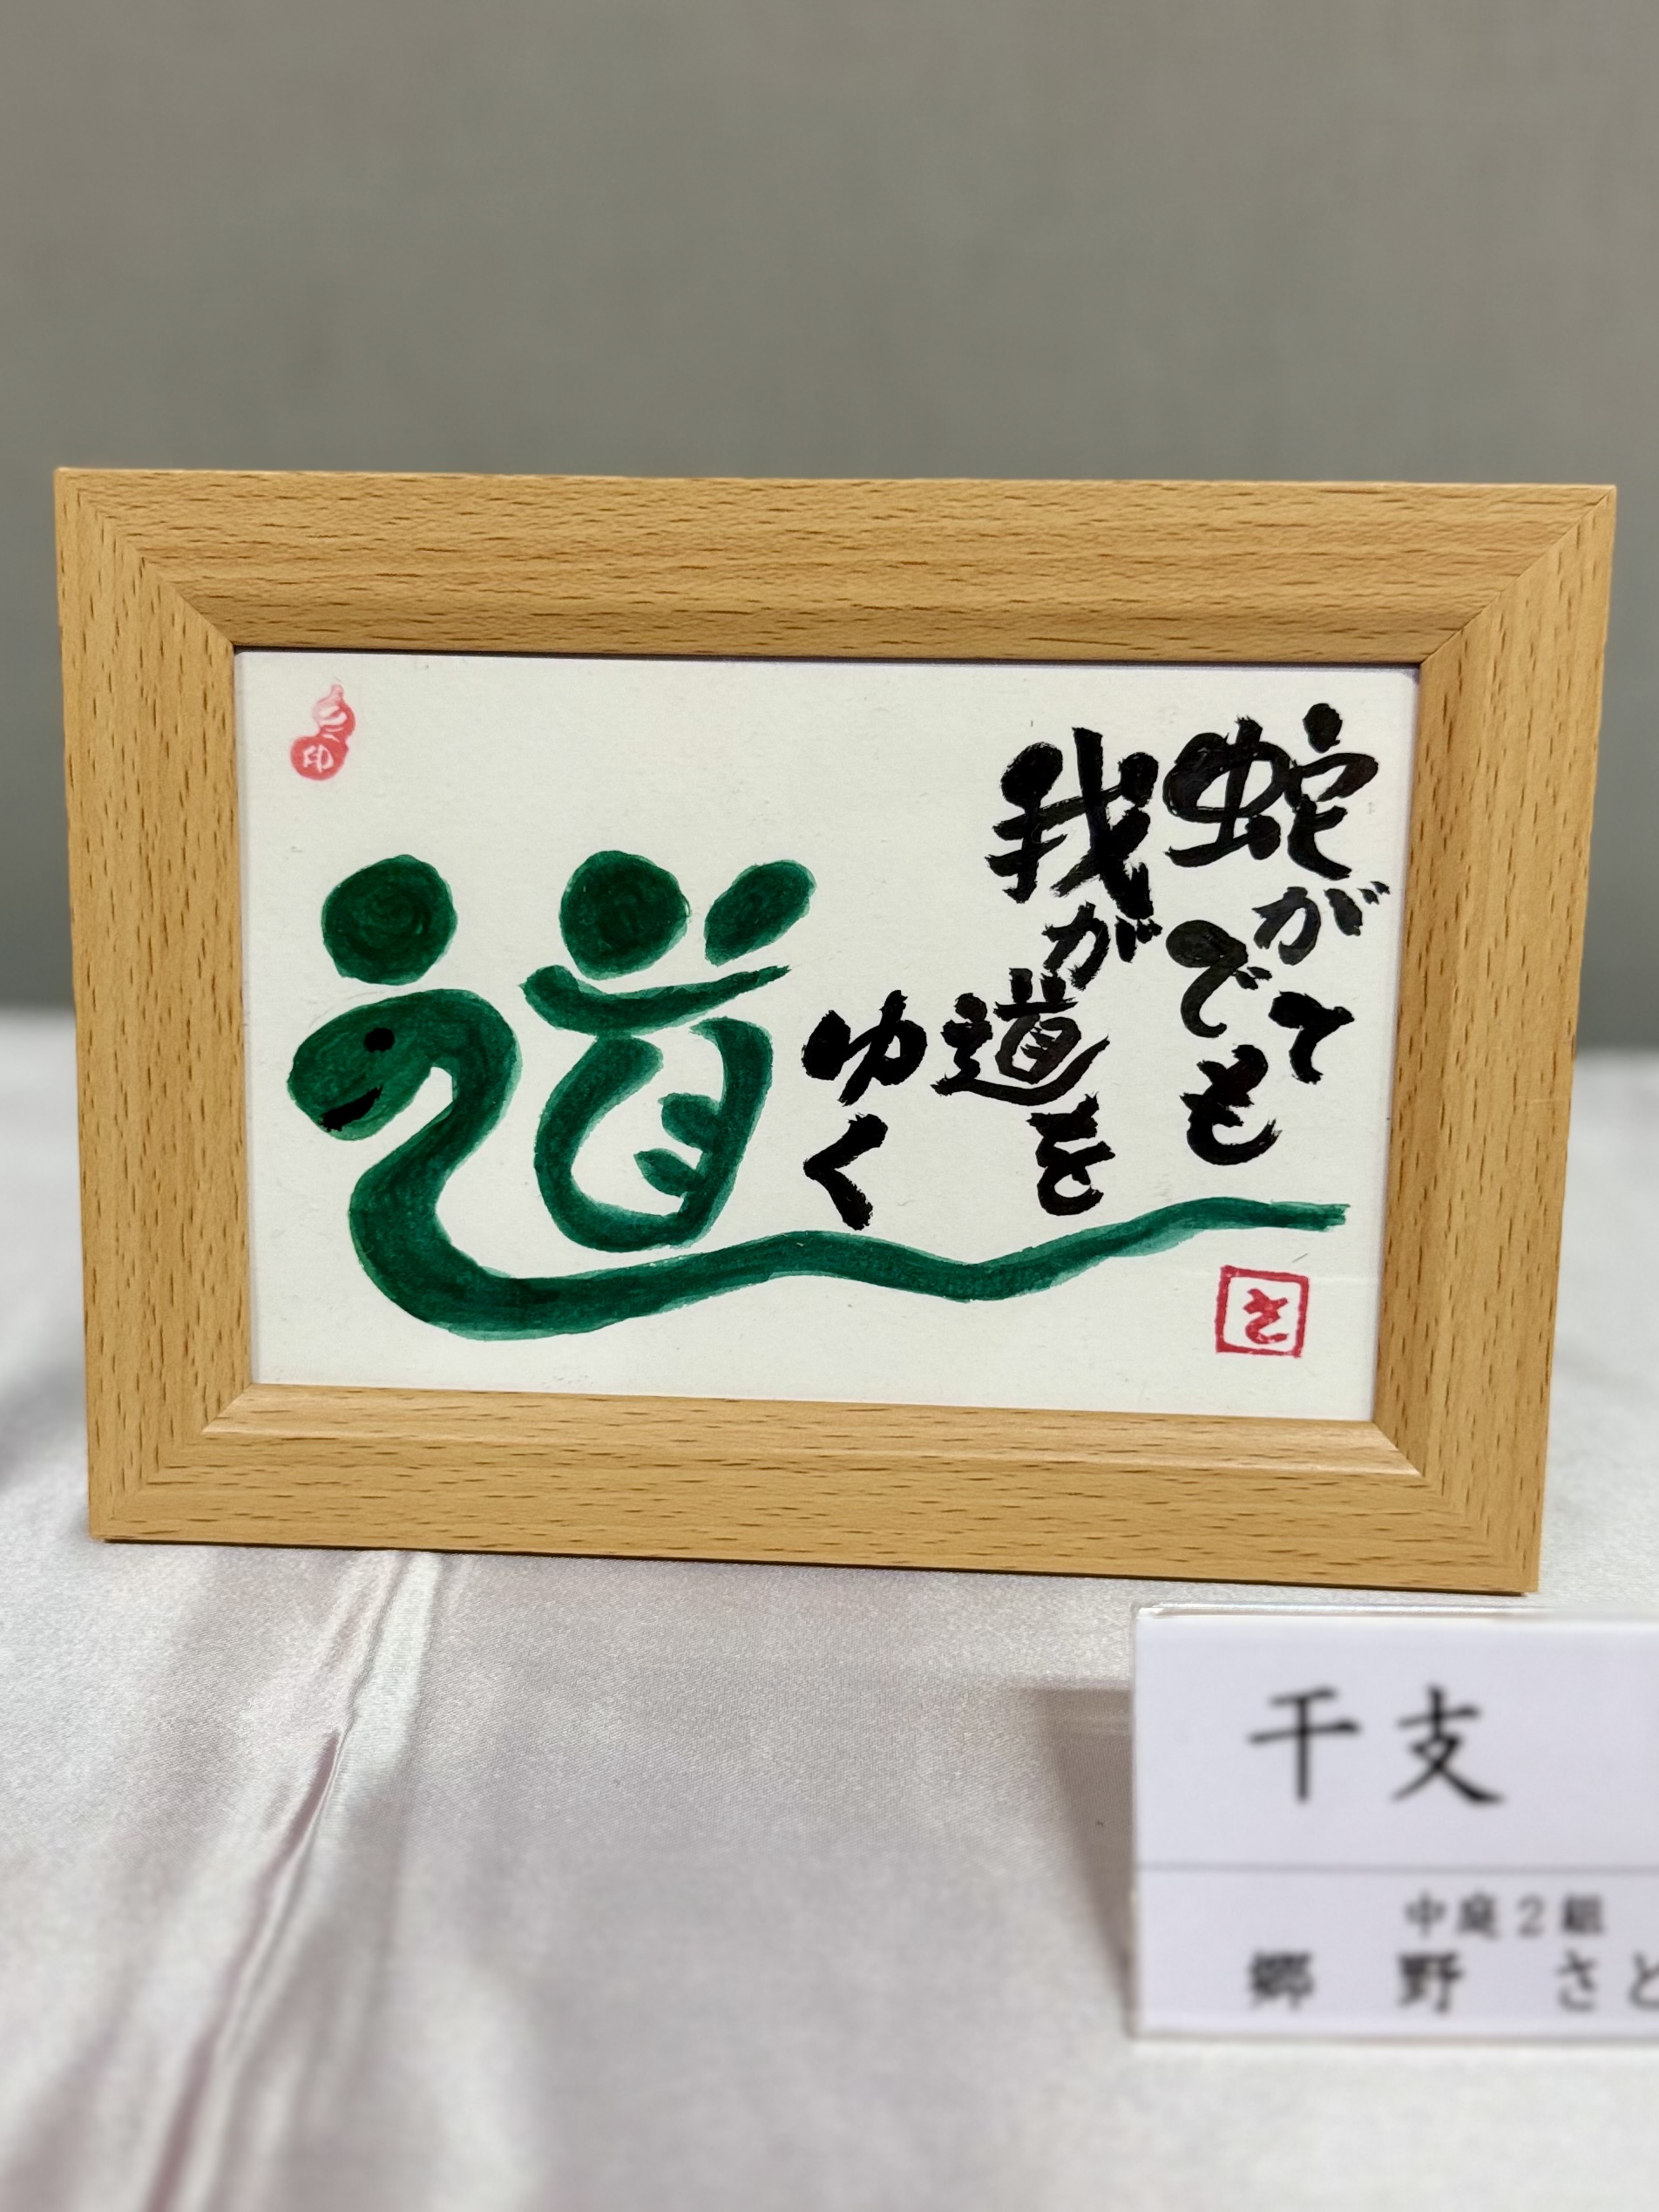 蛇がでても
我が道を
ゆく
道
印
干支
中庭2組
郷野 さと